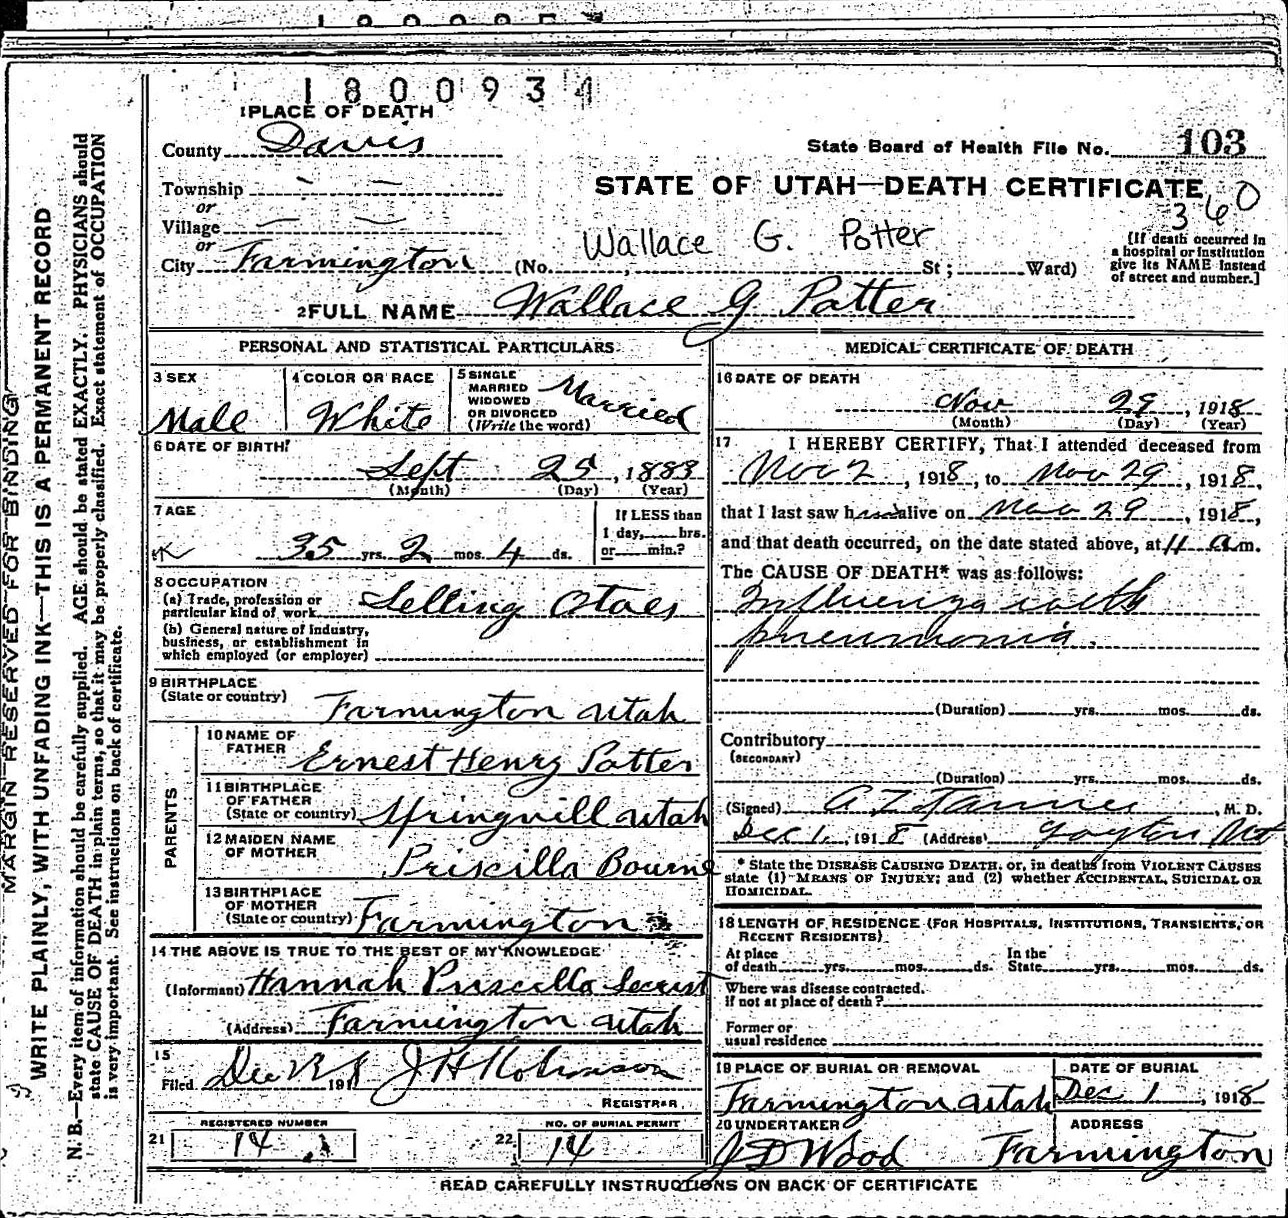 1800934
1 PLACE OF DEATH
County Davis
State Board of Health File No. 103
Township
or
STATE OF UTAH—DEATH CERTIFICATE
360
Village
or
Wallace G. Potter
City Farmington (No. St; Ward)
[If death occurred in
a hospital or institution
give its NAME instead
of street and number.]
2 FULL NAME Wallace G Potter
PERSONAL AND STATISTICAL PARTICULARS
3 SEX
Male
4 COLOR OR RACE
White
5 SINGLE
MARRIED
WIDOWED
OR DIVORCED
(Write the word)
Married
6 DATE OF BIRTH
Sept 25, 1883
(Month) (Day) (Year)
7 AGE
35 yrs. 2 mos. 4 ds.
If LESS than
1 day, hrs.
or min.?
8 OCCUPATION
(a) Trade, profession or
particular kind of work Selling
(b) General nature of industry,
business, or establishment in
which employed (or employer)
9 BIRTHPLACE
(State or country) Farmington Utah
PARENTS
10 NAME OF
FATHER Ernest Henry Potter
11 BIRTHPLACE
OF FATHER
(State or country) Springvill Utah
12 MAIDEN NAME
OF MOTHER Priscilla Bourne
13 BIRTHPLACE
OF MOTHER
(State or country) Farmington
14 THE ABOVE IS TRUE TO THE BEST OF MY KNOWLEDGE
(Informant) Hannah Priscilla Secrist
(Address) Farmington Utah
15
Filed Dec 1918 J H Robinson
REGISTRAR
REGISTERED NUMBER
21 14
NO. OF BURIAL PERMIT
22 14
MEDICAL CERTIFICATE OF DEATH
16 DATE OF DEATH
Nov 29, 1918
(Month) (Day) (Year)
17 I HEREBY CERTIFY, That I attended deceased from
Nov 2, 1918, to Nov 29, 1918,
that I last saw h alive on Nov 29, 1918,
and that death occurred, on the date stated above, at 11 a m.
The CAUSE OF DEATH* was as follows:
Influenza with
pneumonia.
(Duration) yrs. mos. ds.
Contributory
(SECONDARY)
(Duration) yrs. mos. ds.
(Signed) A Z Tanner, M. D.
Dec 1, 1918 (Address) Layton
* State the DISEASE CAUSING DEATH, or, in deaths from VIOLENT CAUSES
state (1) MEANS OF INJURY; and (2) whether ACCIDENTAL, SUICIDAL OR
HOMICIDAL.
18 LENGTH OF RESIDENCE (FOR HOSPITALS, INSTITUTIONS, TRANSIENTS, OR
RECENT RESIDENTS)
At place
of death yrs. mos. ds.
In the
State yrs. mos. ds.
Where was disease contracted.
if not at place of death?
Former or
usual residence
19 PLACE OF BURIAL OR REMOVAL
Farmington Utah
DATE OF BURIAL
Dec 1, 1918
20 UNDERTAKER
J D Wood
ADDRESS
Farmington
READ CAREFULLY INSTRUCTIONS ON BACK OF CERTIFICATE
MARGIN RESERVED FOR BINDING
WRITE PLAINLY, WITH UNFADING INK—THIS IS A PERMANENT RECORD
N. B.—Every item of information should be carefully supplied. AGE should be stated EXACTLY. PHYSICIANS should
state CAUSE OF DEATH in plain terms, so that it may be properly classified. Exact statement of OCCUPATION
is very important. See instructions on back of certificate.